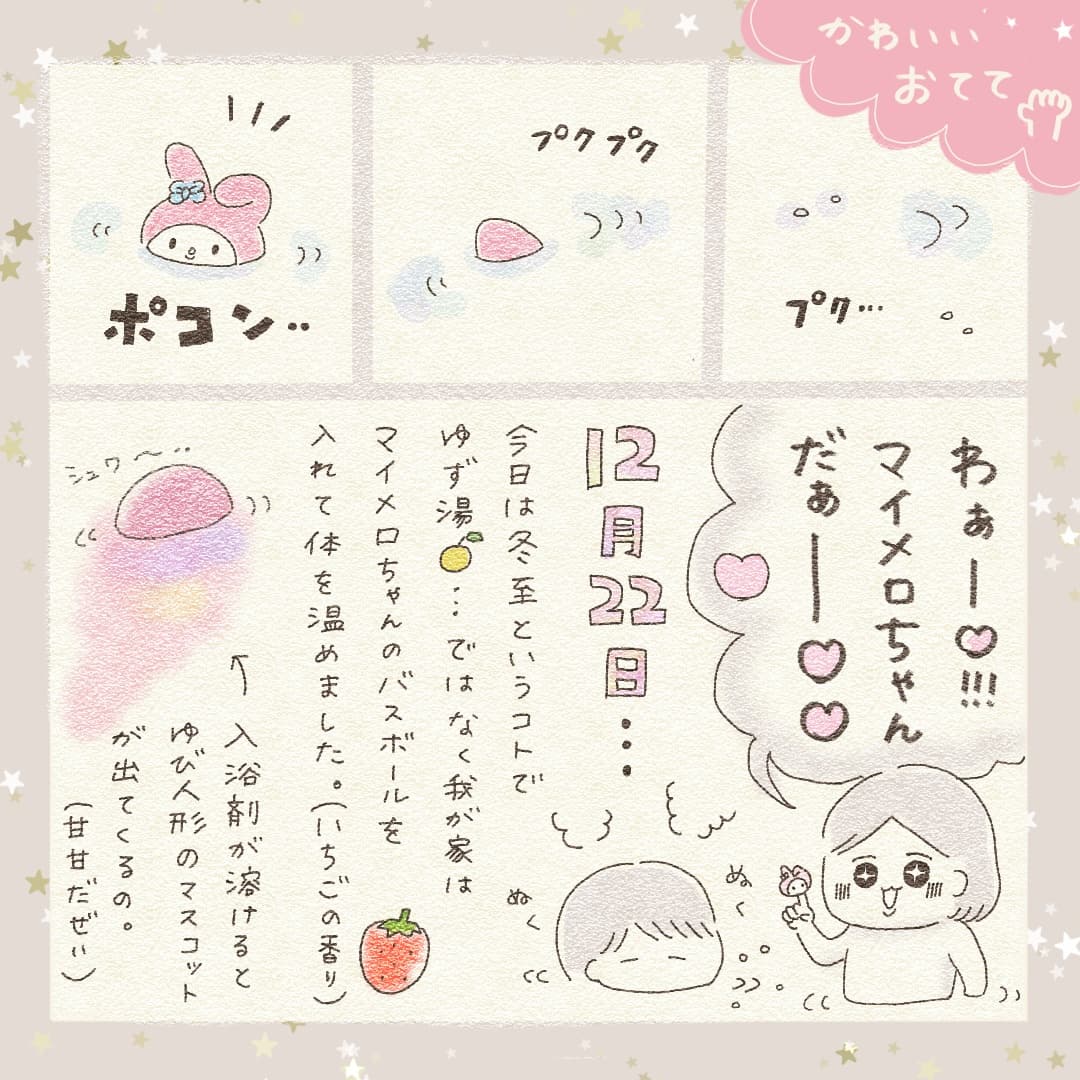 かわいい
おてて
プク…
プクプク
ポコン‥
わぁー♡!!!
マイメロちゃん
だぁー♡♡
12月22日…
今日は冬至というコトで
ゆず湯…ではなく我が家は
マイメロちゃんのバスボールを
入れて体を温めました。(いちごの香り)
シュワ〜‥
↑入浴剤が溶けると
ゆび人形のマスコット
が出てくるの。
(甘甘だぜぃ)
ぬく
ぬく